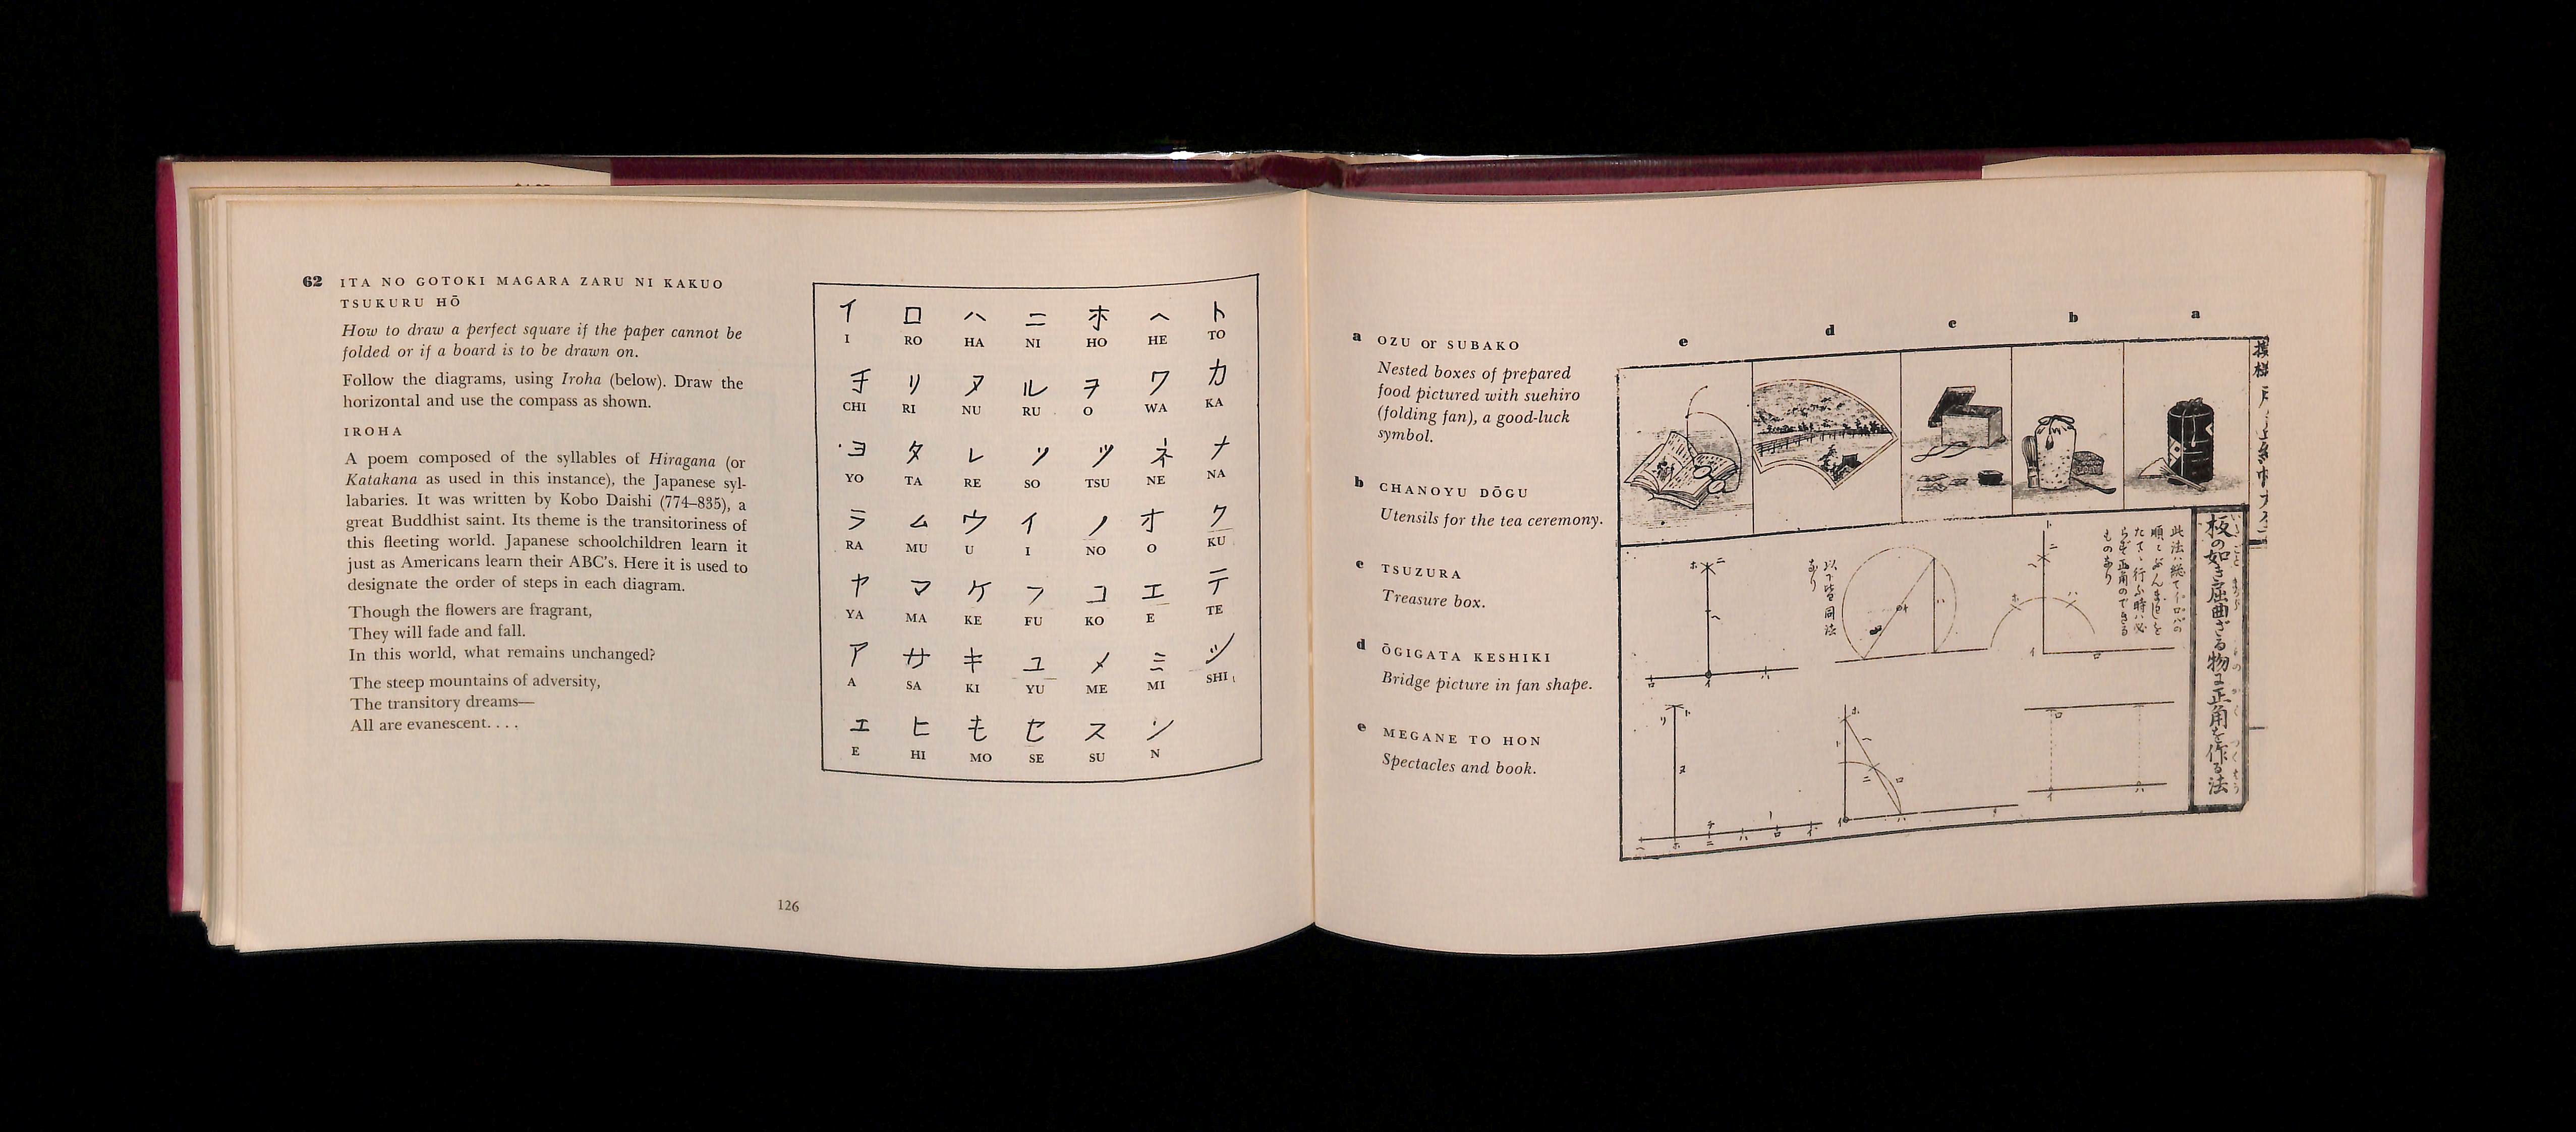 62 ITA NO GOTOKI MAGARA ZARU NI KAKUO
TSUKURU HŌ
How to draw a perfect square if the paper cannot be
folded or if a board is to be drawn on.
Follow the diagrams, using Iroha (below). Draw the
horizontal and use the compass as shown.
IROHA
A poem composed of the syllables of Hiragana (or
Katakana as used in this instance), the Japanese syl-
labaries. It was written by Kobo Daishi (774–835), a
great Buddhist saint. Its theme is the transitoriness of
this fleeting world. Japanese schoolchildren learn it
just as Americans learn their ABC's. Here it is used to
designate the order of steps in each diagram.
Though the flowers are fragrant,
They will fade and fall.
In this world, what remains unchanged?
The steep mountains of adversity,
The transitory dreams—
All are evanescent. . . .
イ ロ ハ ニ ホ ヘ ト
I RO HA NI HO HE TO
チ リ ヌ ル ヲ ワ カ
CHI RI NU RU O WA KA
ヨ タ レ ソ ツ ネ ナ
YO TA RE SO TSU NE NA
ラ ム ウ イ ノ オ ク
RA MU U I NO O KU
ヤ マ ケ フ コ エ テ
YA MA KE FU KO E TE
ア サ キ ユ メ ミ シ
A SA KI YU ME MI SHI
エ ヒ モ セ ス ン
E HI MO SE SU N
126
a OZU or SUBAKO
Nested boxes of prepared
food pictured with suehiro
(folding fan), a good-luck
symbol.
b CHANOYU DŌGU
Utensils for the tea ceremony.
c TSUZURA
Treasure box.
d ŌGIGATA KESHIKI
Bridge picture in fan shape.
e MEGANE TO HON
Spectacles and book.
e d c b a
板の如き屈曲ざる物に正角を作る法
此法ハ総てイロハの
順にぶんまはしを
たて、行ふ時ハ必
らず正角のできる
ものあり
以下皆同法
あり